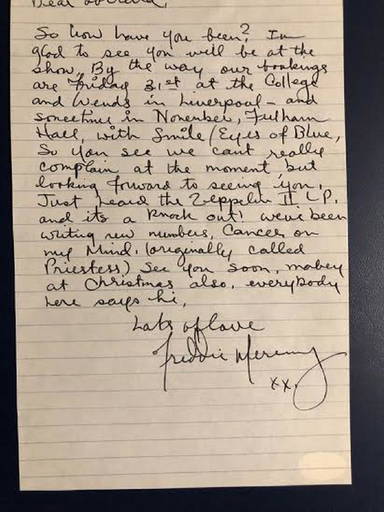 Dear
So how have you been? Im
glad to see you will be at the
show, By the way our bookings
are Friday 31st at the College
and Wends in Liverpool – and
sometime in November, Fulham
Hall, with Smile/Eyes of Blue,
So you see we cant really
complain at the moment, but
looking forward to seeing you.
Just heard the Zeppelin II LP.
and its a knock out! weve been
writing new numbers, Cancer on
my Mind, (originally called
Priestess) See you soon, mabey
at Christmas also, everybody
here says hi,
Lots of love
Freddie Mercury
xx.